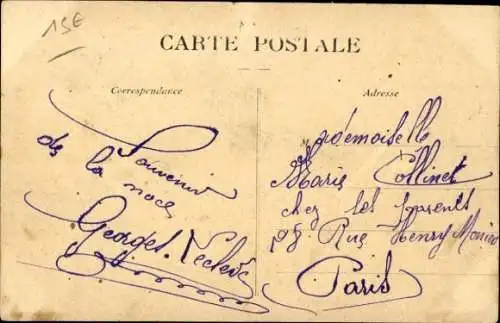 15E
CARTE POSTALE
Correspondance
Adresse
Souvenir
de la noce
Georges Leclerc
Mademoiselle
Marie Collinet
chez les parents
Rue Henry
Paris